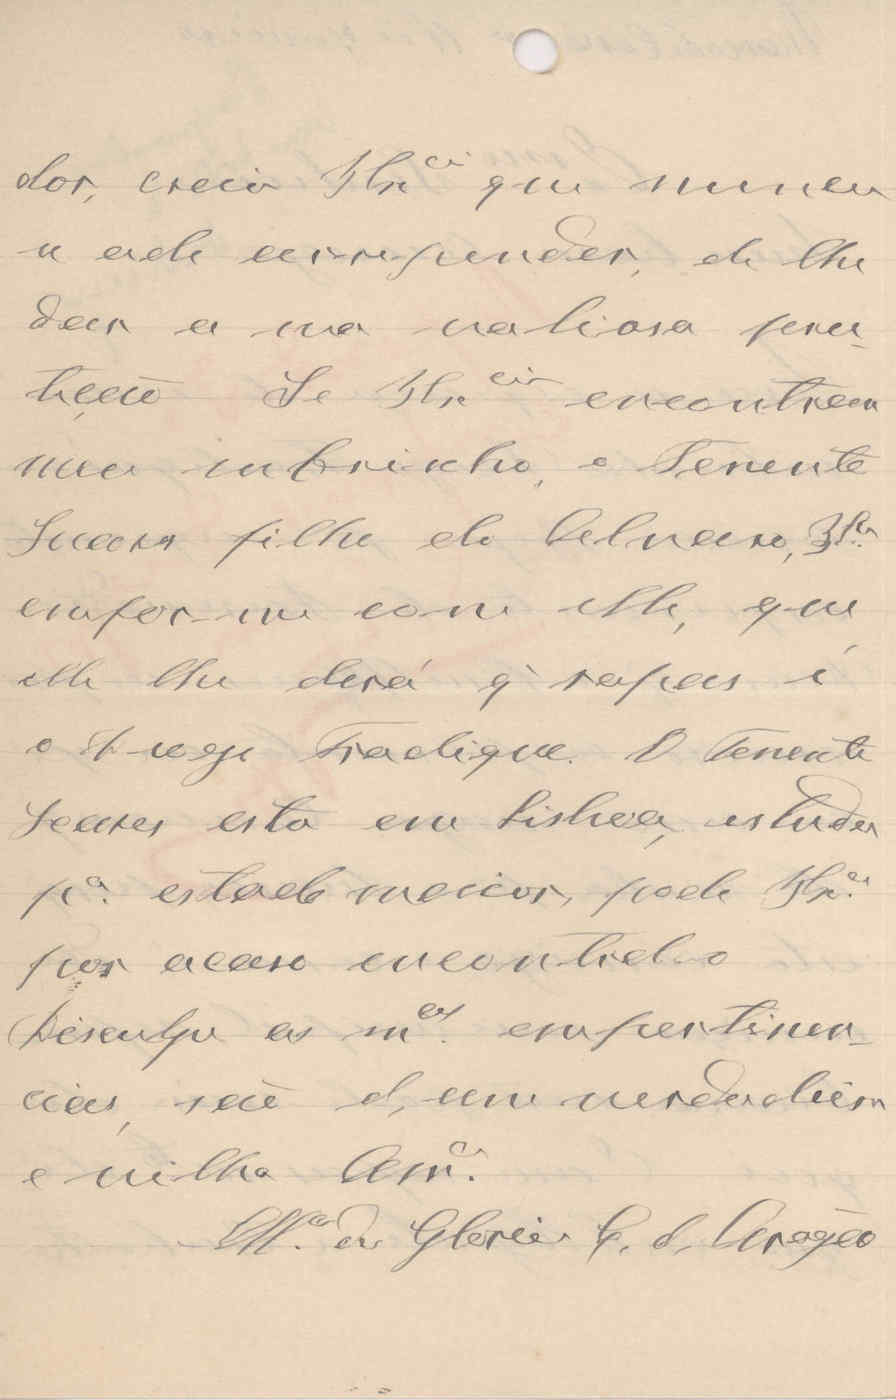 dor, creia V.Ex.cia que nunca
s' ade arrepender, de lhe
dar a sua valiosa pru-
teção Se V.Ex.cia encontrar
meu subrinho, o Tenente
Suares filho do Calvario, V.Ex.ª
emfor-me com elle, que
elle lhe dirá q' rapas é
o Fradique. O Tenente
Soares esta em Lisboa, estuda
pª. estado maior, pode V.Ex.ª
por acaso encontral-o
Disculpe as m.as empertinen-
cias, são d'uma verdadeira
e vilha Am.ª
M.ª da Gloria C. d'Aragão